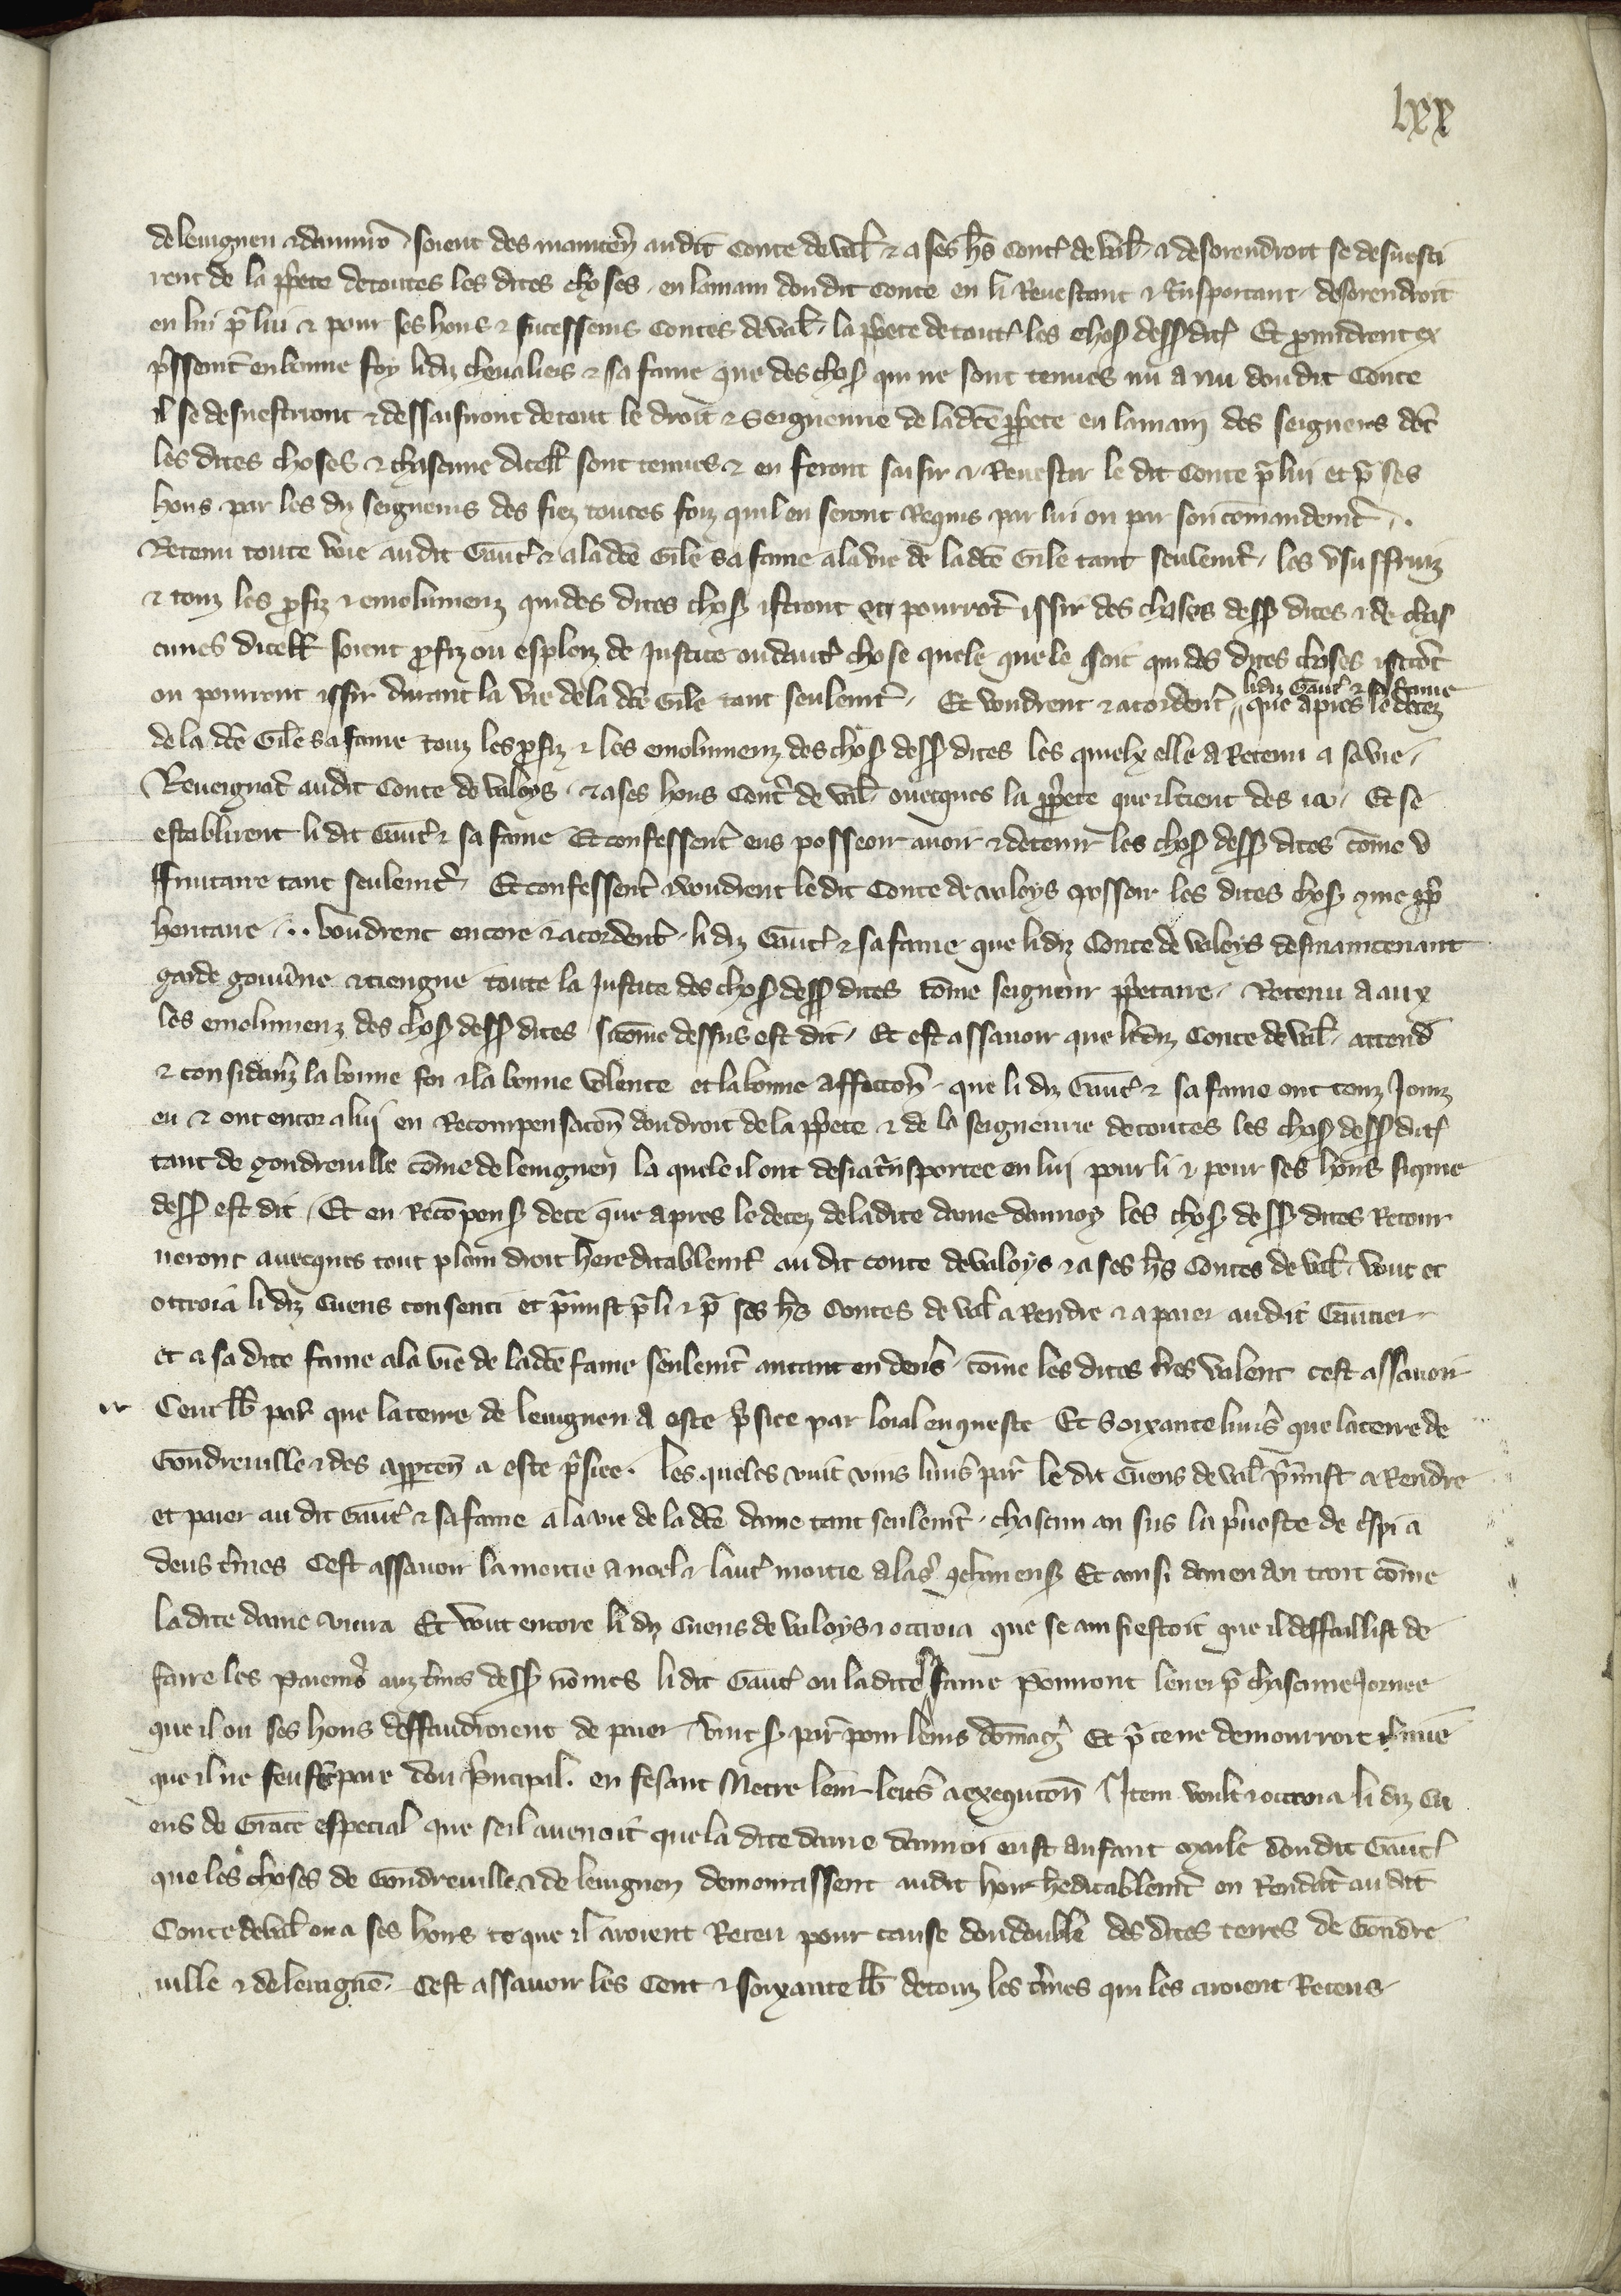 lxx
de leuignen ⁊ dannuo soient des mainten̄ au dit Conte de Val̄ ⁊ a ses hs̄ Cont̾ de Val̄ ⁊ desorendroit se desuesti
rent de la pp̄ete de toutes les dites choses en la main dou dit Conte en li Reuestant ⁊ t̃nsportant desorendroit
en lui pr̄ lui ⁊ pour ses hoirs ⁊ sucesseurs Contes de Val̄ la pp̄ete de tout̾ les choss dess dit̾ Et ꝓmidrent ex
p̄ssemt̄ en bonne foy li diz cheualiers ⁊ sa fame que des choss qui ne sont tenues nu a nu dou dit Conte
il se desuestiront ⁊ dessaisiront de tout le droit ⁊ seigneurie de la dc̄e ꝓp̄ete en la main des seigneurs dōt
les dites choses ⁊ chascune dicell̄ sont tenues ⁊ en feront saisir ⁊ Reuestir le dit Conte pr̄ lui et pr̄ ses
hoirs par les diz seigneurs des fiez toutes foiz quil en seront Requis par lui ou par son cōmandemt̄
Retenu toute voie au dit Gaut̾ ⁊ a la dc̄e Gile sa fame a la vie de la dc̄e Gile tant seulemt̄ les vsuffruiz
⁊ touz les ꝓfiz ⁊ emolumenz qui des dites choss istront ou pourrōt issir des choses dess dites ⁊ de chas
cunes dicell̄ soient ꝓfiz ou esploiz de Justice ou daut̾ chose quele que le soit qui des dites choses istrōt
ou pourront issir durant la vie de la dc̄e Gile tant seulemt̄ Et voudrent ⁊ acorderēt li diz Gaut̾ ⁊ sa fame que apres le decez
de la dc̄e Gile sa fame touz les ꝓfiz ⁊ les emolumenz des choss dess dites les quielx elle a Retenu a sa vie
Reueignēt au dit Conte de Valoys ⁊ a ses hoirs Cont̾ de Val̄ ouecques la ꝓp̄ete que il tient des ia Et se
establirent li dit Gaut̾ ⁊ sa fame Et confesserēt eus posseoir auoir ⁊ detenir les choss dess dites cōme v
ffruitaire tant seulemt̄ Et confesserēt ⁊ voudrent le dit Conte de valoys posseoir les dites choss ꝯme ꝓp̄
heritaire voudrent encore ⁊ acorderēt li diz Gaut̾ ⁊ sa fame que li diz Conte de valoys desmaintenant
garde gouūne ⁊ tiengne toute la Justice des choss dess dites cōme seigneur pp̄etaire Retenu a aux
les emolumenz des choss dess dites si cōme dessus est dit Et est assauoir que li diz Conte de Val̄ attend̄
⁊ considanz la bonne foi ⁊ la bonne volente et la bonne affectiōn que li diz Gaut̾ ⁊ sa fame ont touz Jourz
eu ⁊ ont encor a lui en Recompensatiōn dou droit de la pp̄ete ⁊ de la seigneurie de toutes les choss dess dit̾
tant de gondreuille cōme de leuignen la quele il ont desia t̃nsportee en lui pour li ⁊ pour ses hoirs si ꝯme
dess est dit Et en Recōpenss de ce que apres le decez de la dite dame dannoy les choss dess dites Retour
neront auecques tout plain droit hereditablemt̄ au dit conte de valoys ⁊ a ses hs̄ Contes de Val̄ vout et
ottroia li diz Cuens consenti et pr̄mist pr̄ li ⁊ pr̄ ses hs̄ Contes de Val̄ a Rendre ⁊ a paier au dit Gautier
et a sa dite fame a la vie de la dc̄e fame seulemt̄ autant en deniers cōme les dites tr̄res valent cest assauoir
Cent lb̄ par̄ que la terre de leuignen a este prisiee par loial enqueste Et Soixante liurs̄ que la terre de
Gondreuille ⁊ des apꝑten̄ a este prisiee les queles vuit vins liurs̄ par̄ le dit Cuens de Val̄ pr̄mist a Rendre
et paier au dit Gaut̾ ⁊ sa fame a la vie de la dc̄e dame tant seulemt̄ chascun an sus la preuoste de Crespi a
deus tr̄mes Cest assauoir la moitie a noel ⁊ laut̾ moitie a las̄ Et ainsi dan en an tant cōme
la dite dame viura Et vout encore li diz Cuens de valoys ⁊ ottroia que se ainsi estoit que il deffaillist de
faire les paiems̄ aux tr̄mes dess nōmes li dit Gaut̾ ou la dite fame pourront leuer pr̄ chascune Jornee
que il ou ses hoirs deffaudroient de paier vint ss par̄ pour leurs dōmag̾ Et pr̄ ce ne demourroit mie
que il ne feust paie dou pr̄ncipal en fesant Metre leur lettrs̄ a exequtiōn Item voult ⁊ ottroia li diz Cu
ens de Grace especial que se il auenoit que la dite dame dannoi eust anfant masle dou dit Gaut̾
que les choses de Gondreuille ⁊ de leuignen demourassent au dit hoir hēditablemt̄ en Rendāt au dit
Conte de Val̄ ou a ses hoirs ce que il aroient Receu pour cause dou double des dites terres de Gondre
uille ⁊ de leuignē Cest assauoir les Cent ⁊ soixante lb̄ de touz les tr̄mes qui les aroient Receus